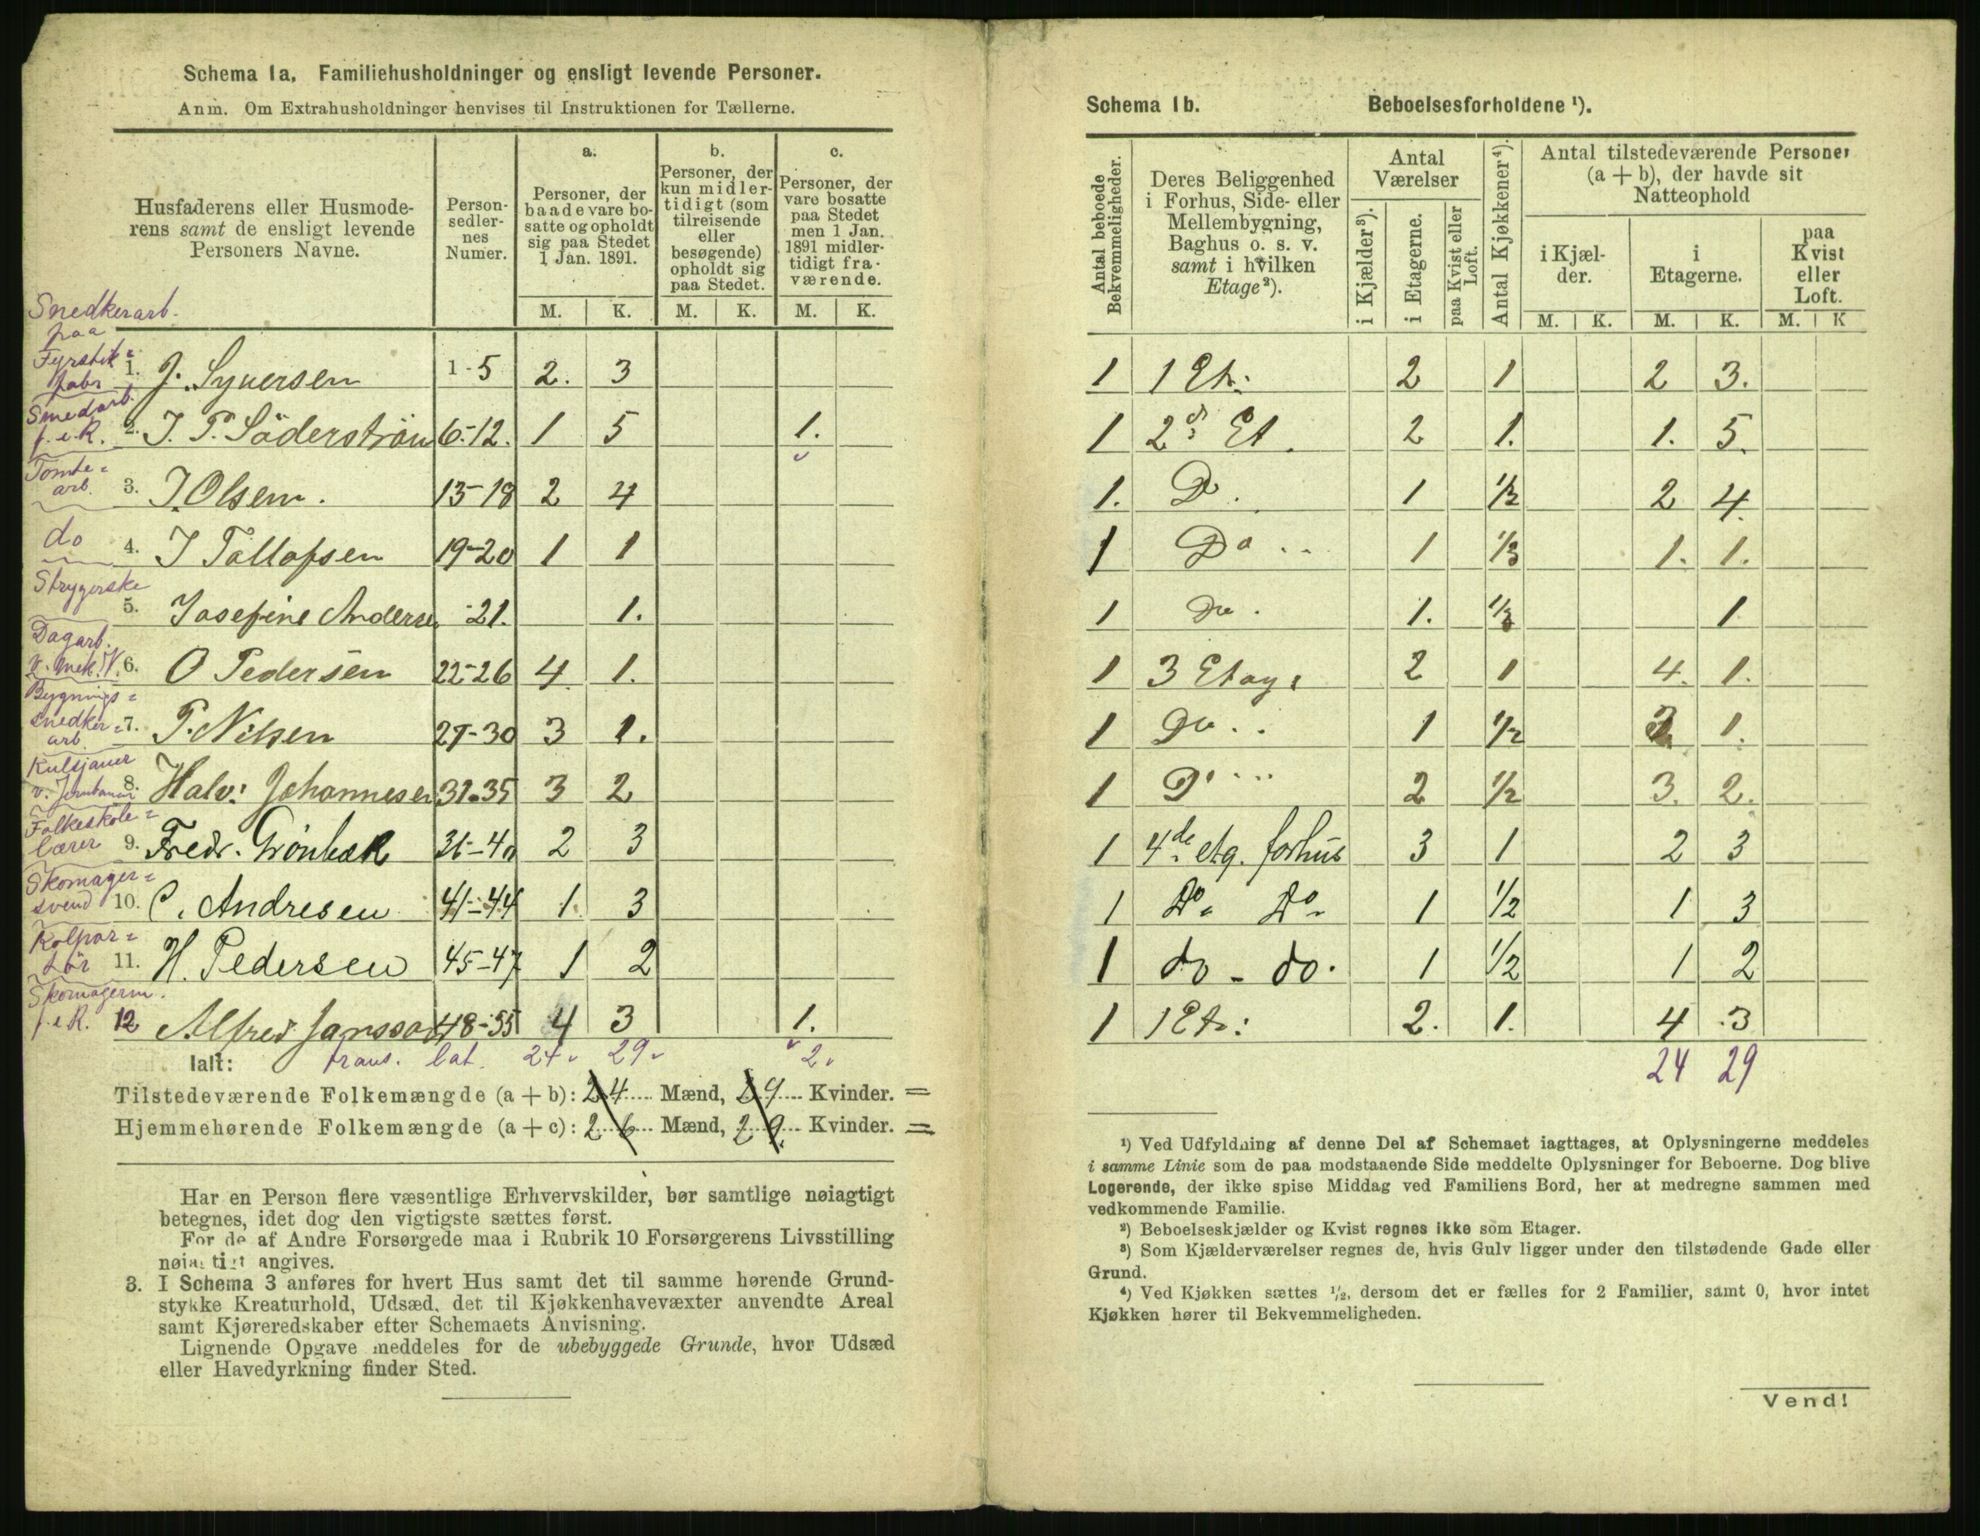 Schema 1a. Familiehusholdninger og ensligt levende Personer.
Anm. Om Extrahusholdninger henvises til Instruktionen for Tællerne.
Husfaderens eller Husmode-
rens samt de ensligt levende
Personers Navne.
Person-
sedler-
nes
Numer.
a.
Personer, der
baade vare bo-
satte og opholdt
sig paa Stedet
1 Jan. 1891.
b.
Personer, der
kun midler-
tidigt (som
tilreisende
eller
besøgende)
opholdt sig
paa Stedet.
c.
Personer, der
vare bosatte
paa Stedet
men 1 Jan.
1891 midler-
tidigt fra-
værende.
M. K. M. K. M. K.
Snedkerarb.
paa
Fyrstik=
fabr 1. J. Syversen 1-5 2. 3
Smedarb.
f.e.R. 2. J. P. Söderström 6-12. 1 5 1.
Tomte=
arb. 3. J. Olsen. 13-18 2 4
do 4. J Tollofsen 19-20 1 1
Strygerske
5. Josefine Anderse -21. 1.
Dagarb.
v. mek. V. 6. O Pedersen 22-26 4. 1.
Bygnings=
snedker=
arb. 7. P. Nilsen 27-30 3 1.
Kulsjauer
v. Jernbanen 8. Halv: Johannesen 31-35 3 2
Folkeskole=
lærer 9. Fredr. Grönbæk 36-40 2 3
Skomager=
svend 10. C. Andresen 41-44 1. 3
Kolpor=
tör 11. H. Pedersen 45-47 1 2
Skomagerm.
f.e.R. 12 Alfred Jansson 48-55 4 3 1.
Ialt: trans. lat. 24 29 2
Tilstedeværende Folkemængde (a + b): 24 Mænd, 29 Kvinder. =
Hjemmehørende Folkemængde (a + c): 26 Mænd, 29. Kvinder. =
Har en Person flere væsentlige Erhvervskilder, bør samtlige nøiagtigt
betegnes, idet dog den vigtigste sættes først.
For de af Andre Forsørgede maa i Rubrik 10 Forsørgerens Livsstilling
nøiagtigt angives.
3. I Schema 3 anføres for hvert Hus samt det til samme hørende Grund-
stykke Kreaturhold, Udsæd, det til Kjøkkenhavevæxter anvendte Areal
samt Kjøreredskaber efter Schemaets Anvisning.
Lignende Opgave meddeles for de ubebyggede Grunde, hvor Udsæd
eller Havedyrkning finder Sted.
Schema 1b. Beboelsesforholdene ¹).
Antal beboede
Bekvemmeligheder.
Deres Beliggenhed
i Forhus, Side- eller
Mellembygning,
Baghus o. s. v.
samt i hvilken
Etage²).
Antal
Værelser
i Kjælder³).
i Etagerne.
paa Kvist eller
Loft.
Antal Kjøkkener⁴).
Antal tilstedeværende Personer
(a + b), der havde sit
Natteophold
i Kjæl-
der.
i
Etagerne.
paa
Kvist
eller
Loft.
M. K. M. K. M. K
1 1 Et: 2 1 2 3.
1 2d Et. 2 1. 1. 5.
1. Do. 1 1/3 2 4.
1 Do .. 1 1/3 1. 1.
1 Do . 1. 1/3 1
1 3 Etage 2 1 4. 1.
1 Do .. 1 1/2 3 1.
1 Do ... 2 1/2 3. 2.
1 4de etg. forhus 3 1 2 3
1 Do Do 1 1/2 1 3
1 do - do. 1 1/2 1 2
1 1 Et: 2. 1. 4 3
24 29
¹) Ved Udfyldning af denne Del af Schemaet iagttages, at Oplysningerne meddeles
i samme Linie som de paa modstaaende Side meddelte Oplysninger for Beboerne. Dog blive
Logerende, der ikke spise Middag ved Familiens Bord, her at medregne sammen med
vedkommende Familie.
²) Beboelseskjælder og Kvist regnes ikke som Etager.
³) Som Kjælderværelser regnes de, hvis Gulv ligger under den tilstødende Gade eller
Grund.
⁴) Ved Kjøkken sættes ¹/₂, dersom det er fælles for 2 Familier, samt 0, hvor intet
Kjøkken hører til Bekvemmeligheden.
Vend!